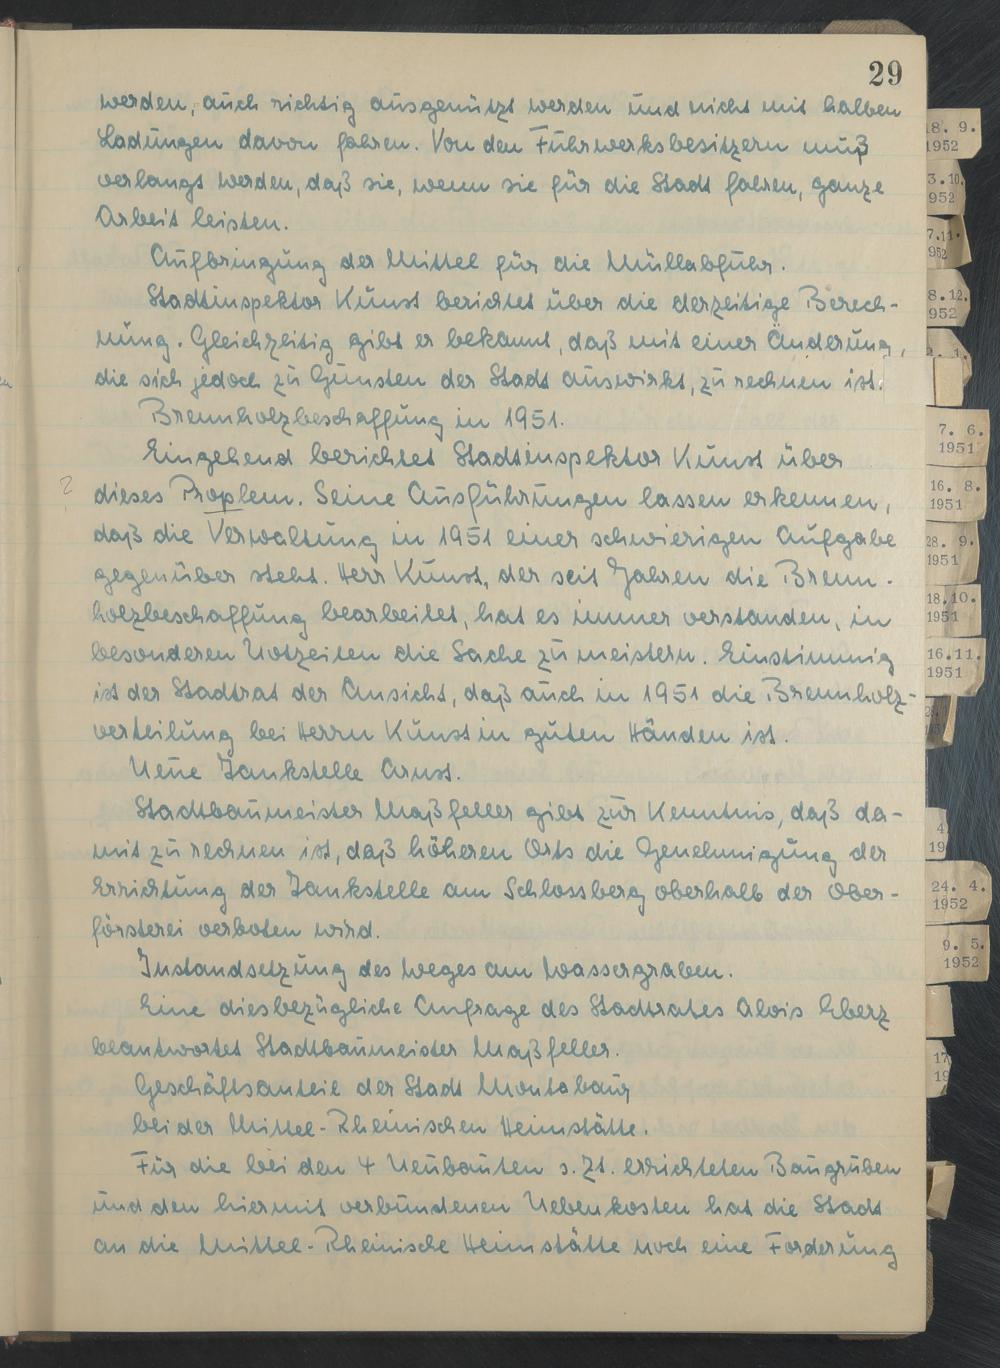 29
werden, auch richtig ausgenützt werden und nicht mit halben
Ladungen davon fahren. Von den Fuhrwerksbesitzern muß
verlangt werden, daß sie, wenn sie für die Stadt fahren, ganze
Arbeit leisten.
Aufbringung der Mittel für die Müllabfuhr.
Stadtinspektor Kunst berichtet über die derzeitige Berech-
nung. Gleichzeitig gibt er bekannt, daß mit einer Änderung,
die sich jedoch zu Gunsten der Stadt auswirkt, zu rechnen ist.
Brennholzbeschaffung in 1951.
Eingehend berichtet Stadtinspektor Kunst über
? dieses Proplem. Seine Ausführungen lassen erkennen,
daß die Verwaltung in 1951 einer schwierigen Aufgabe
gegenüber steht. Herr Kunst, der seit Jahren die Brenn-
holzbeschaffung bearbeitet, hat es immer verstanden, in
besonderen Notzeiten die Sache zu meistern. Einstimmig
ist der Stadtrat der Ansicht, daß auch in 1951 die Brennholz-
verteilung bei Herrn Kunst in guten Händen ist.
Neue Tankstelle Arust.
Stadtbaumeister Maßfeller gibt zur Kenntnis, daß da-
mit zu rechnen ist, daß höheren Orts die Genehmigung der
Errichtung der Tankstelle am Schlossberg oberhalb der Ober-
försterei verboten wird.
Instandsetzung des Weges am Wassergraben.
Eine diesbezügliche Anfrage des Stadtrates Alois Eberz
beantwortet Stadtbaumeister Maßfeller.
Geschäftsanteil der Stadt Montabaur
bei der Mittel-Rheinischen Heimstätte.
Für die bei den 4 Neubauten s. Zt. errichteten Baugruben
und den hiermit verbundenen Nebenkosten hat die Stadt
an die Mittel-Rheinische Heimstätte noch eine Forderung
18. 9.
1952
3.10.
952
7.11.
952
8.12.
952
7. 6.
1951
16. 8.
1951
28. 9.
1951
18.10.
1951
16.11.
1951
4
19
24. 4.
1952
9. 5.
1952
17
19